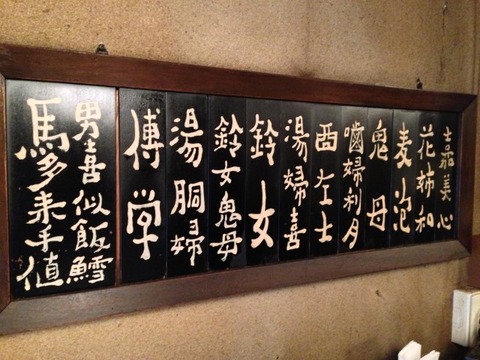 嘉美心
花姉和
麦泡
鬼母
噛婦利月
西左士
湯婦喜
鈴女
鈴女鬼母
湯胴婦
博学
男喜似飯鱈
馬多来手値